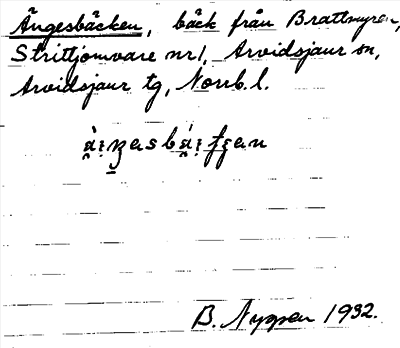 Ängesbäcken, bäck från Brattmyran,
Strittjomvare nr 1, Arvidsjaur sn,
Arvidsjaur tg, Norrb. l.
B. Nygren 1932.